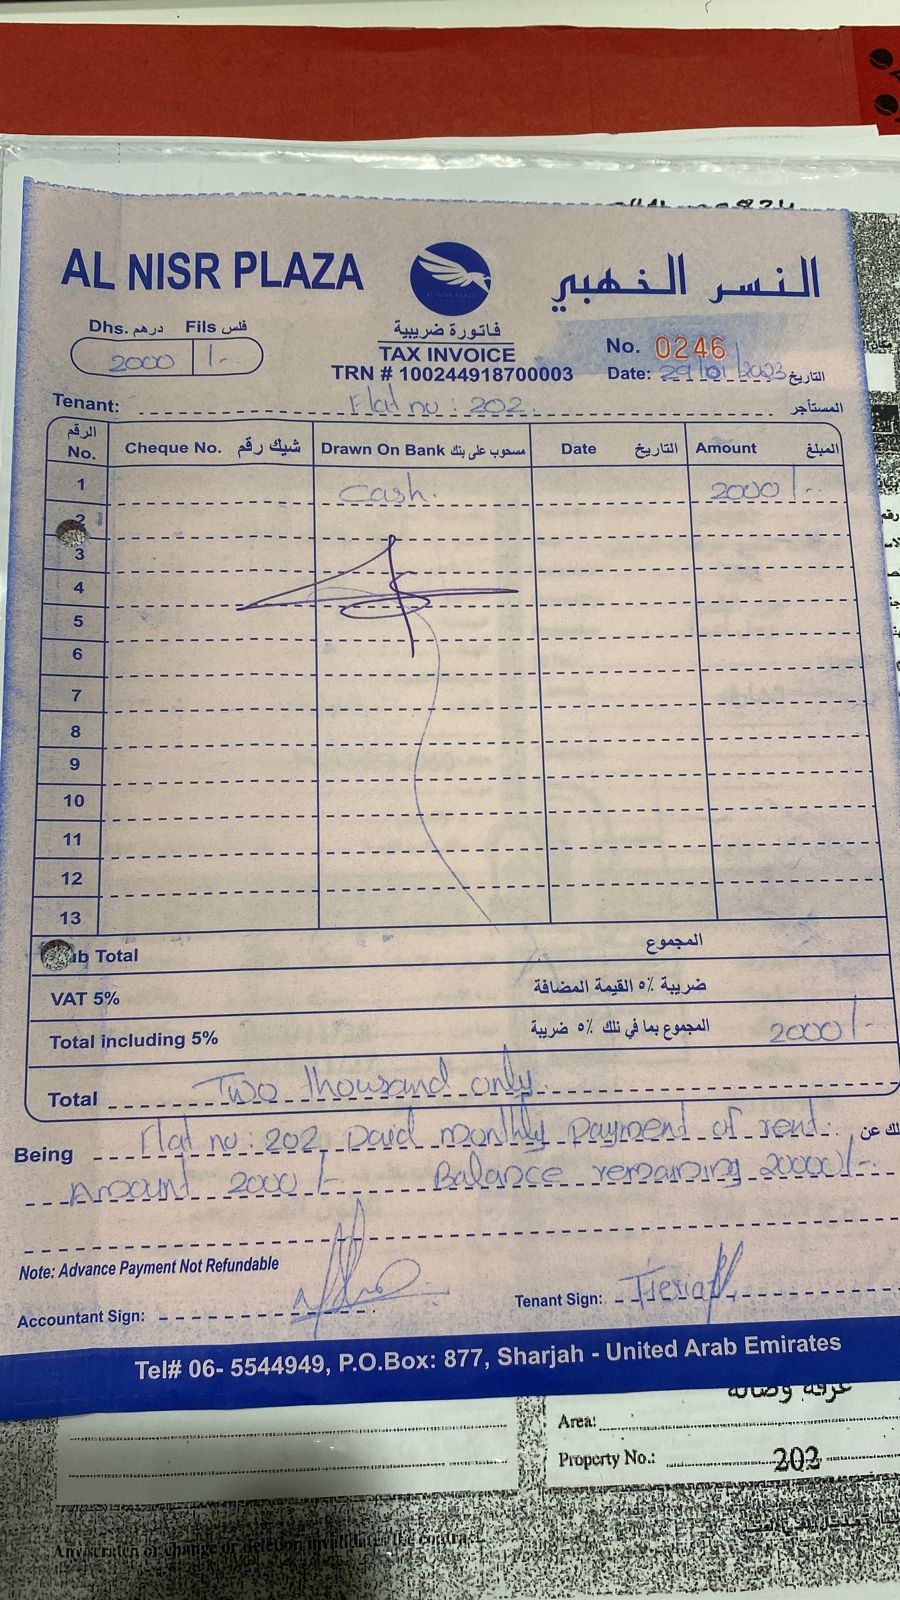 AL NISR PLAZA
النسر الذهبي
Dhs. درهم Fils فلس
2000 /-
فاتورة ضريبية
TAX INVOICE
TRN # 100244918700003
No. 0246
Date: 29/01/2023 التاريخ
Tenant: Flat no : 202 المستأجر
الرقم No. Cheque No. شيك رقم Drawn On Bank مسحوب على بنك Date التاريخ Amount المبلغ
1 Cash. 2000/-
2
3
4
5
6
7
8
9
10
11
12
13
ub Total المجموع
VAT 5% ضريبة ٥٪ القيمة المضافة
Total including 5% المجموع بما في ذلك ٥٪ ضريبة 2000/-
Total Two thousand only.
Being Flat no : 202 Paid monthly payment of rent. لك عن
Amount 2000/- Balance remaining 20000/-.
Note: Advance Payment Not Refundable
Accountant Sign:
Tenant Sign:
Tel# 06- 5544949, P.O.Box: 877, Sharjah - United Arab Emirates
Area:
Property No.: 202
Any scratch or change or deletion invalidates the contract